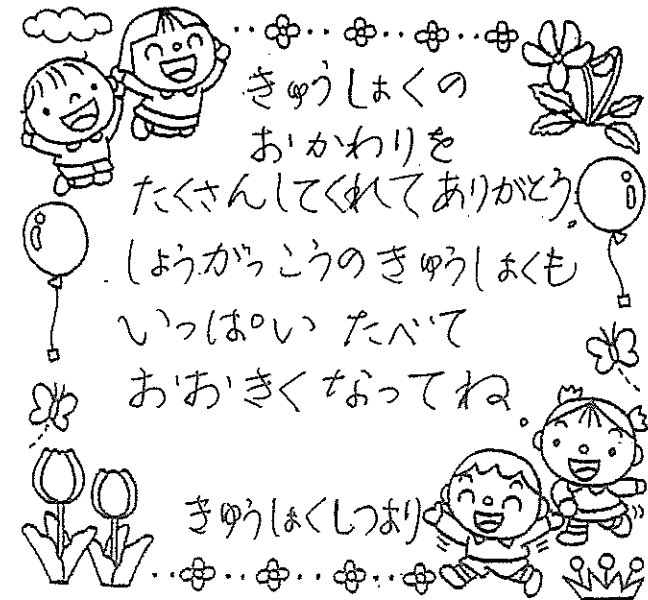 きゅうしょくの
おかわりを
たくさんしてくれてありがとう。
しょうがっこうのきゅうしょくも
いっぱい たべて
おおきくなってね。
きゅうしょくしつより